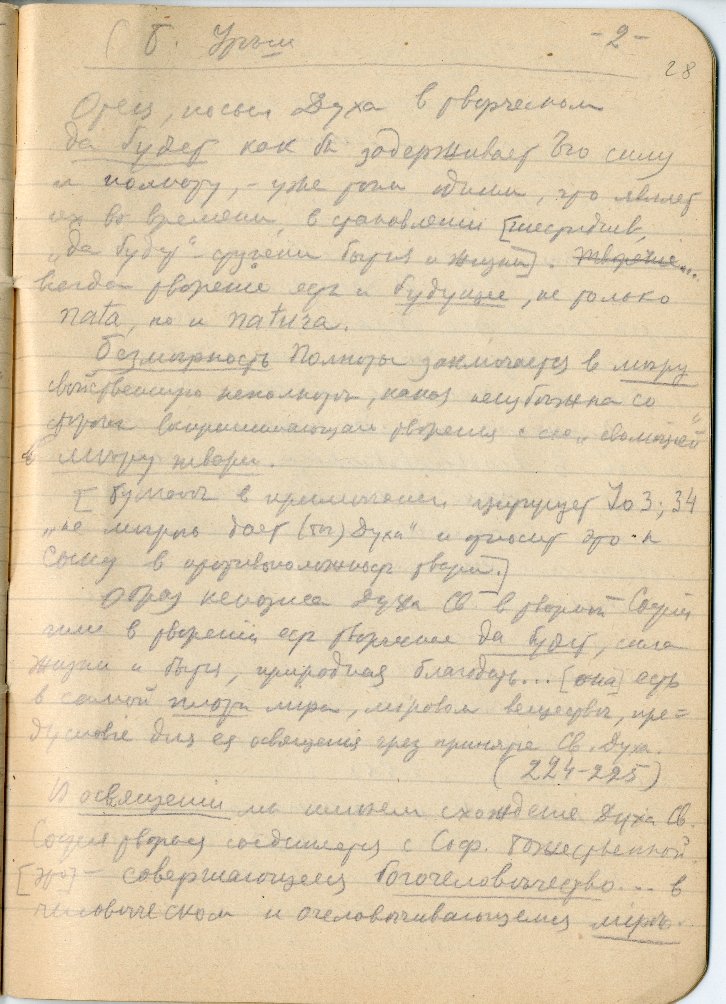 - 2 -
28
Отец, посылая Духа в творческом
да будетъ как бы задерживает Его силу
и полноту, – уже тем одним, что являет
их во времени, в становлении
„да будет“ бытия и жизни]. творение...
всегда творение есть и будущее, не только
nata, но и natura.
Безмѣрность Полноты заключается в мѣру
свойственную неполнотѣ, какая неизбѣжна со
стороны воспринимающаго творения с его
в мѣру твари.
[ в примѣчании цитирует Io 3; 34
„не мѣрою дает (Бог) Духа“ и относит это к
Сыну в противоположность твари.]
Образ кенозиса Духа Св в тварной Софии
или в творении есть творческое да будетъ, сила
жизни и бытия, природная благодать... [она] есть
в самой плоти мира, мировом веществѣ, пре=
дусловіе для ея освященія чрез принятіе Св. Духа.
(224-225)
В освящении мы имѣем схождение Духа Св.
София тварная соединяется с Соф. Божественной.
[это] – совершающееся богочеловѣчество... в
человѣческом и очеловѣчивающемся мірѣ.